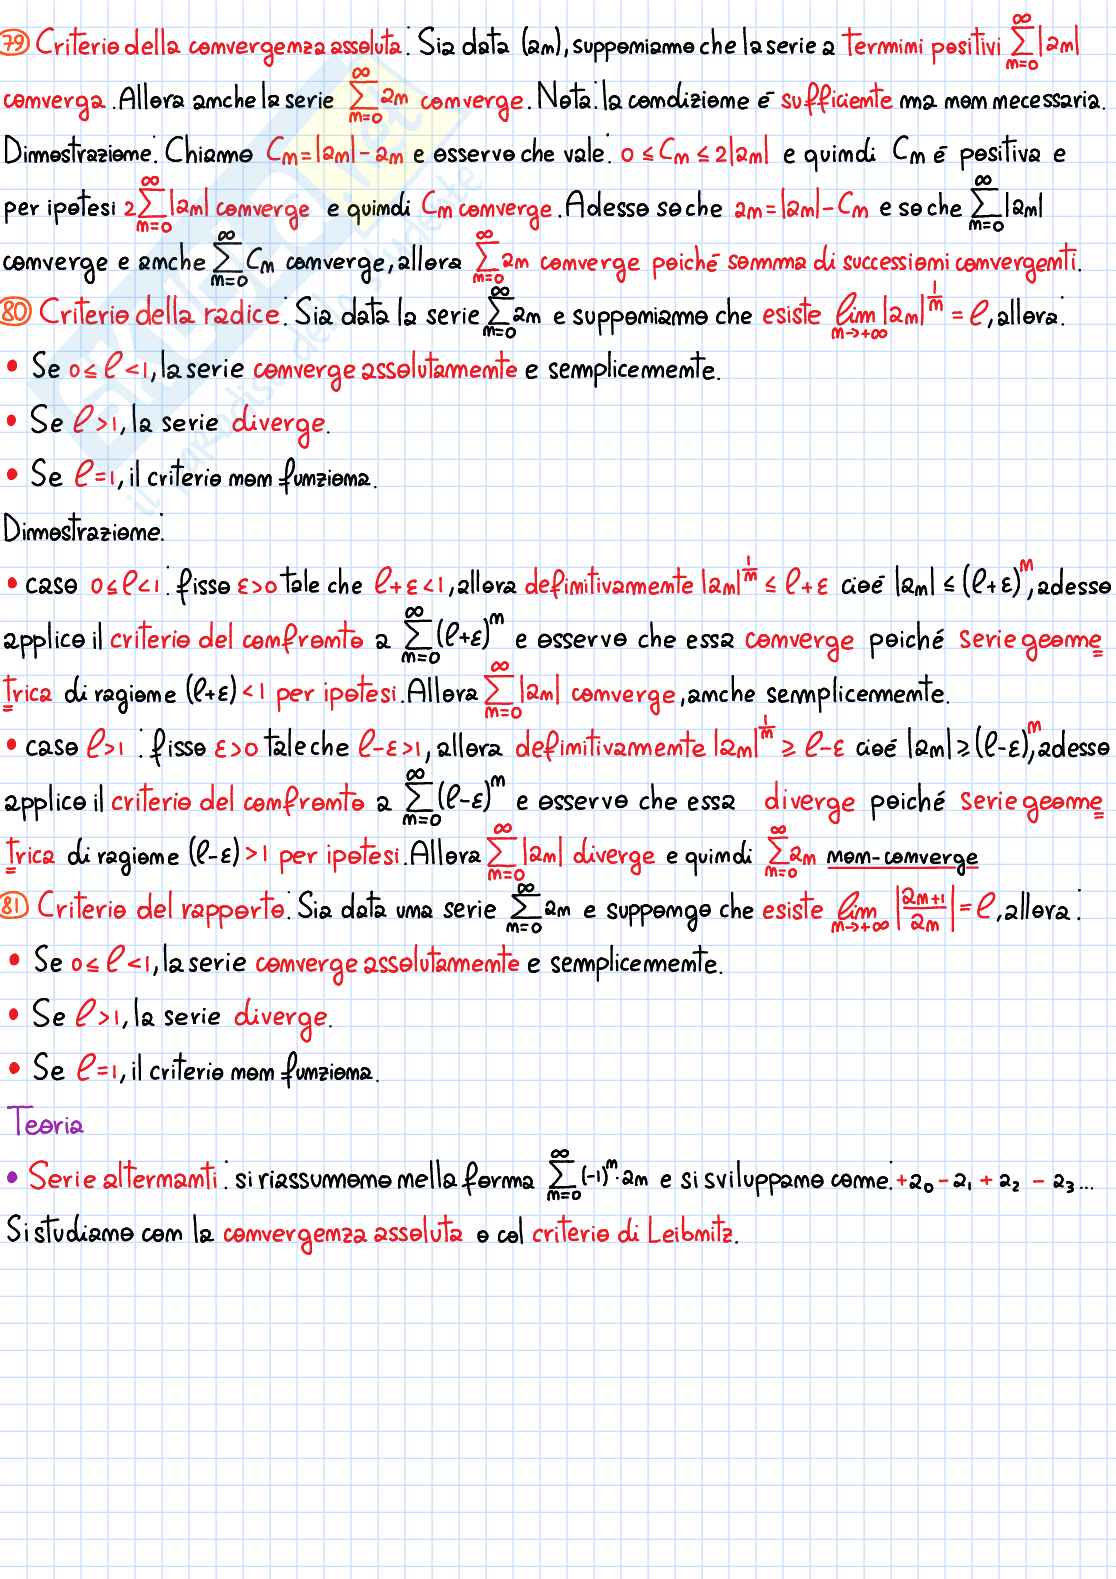 79 Criterio della convergenza assoluta: Sia data (an), supponiamo che la serie a termini positivi ∞∑n=0 |an|
converga. Allora anche la serie ∞∑n=0 an converge. Nota: la condizione é sufficiente ma non necessaria.
Dimostrazione: Chiamo Cn=|an|-an e osservo che vale: 0 ≤ Cn ≤ 2|an| e quindi Cn é positiva e
per ipotesi 2 ∞∑n=0 |an| converge e quindi Cn converge. Adesso so che an=|an|-Cn e so che ∞∑n=0 |an|
converge e anche ∞∑n=0 Cn converge, allora ∞∑n=0 an converge poiché somma di successioni convergenti.
80 Criterio della radice: Sia data la serie ∞∑n=0 an e supponiamo che esiste lim n→+∞ |an|^1/n = ℓ, allora:
• Se 0≤ ℓ <1, la serie converge assolutamente e semplicemente.
• Se ℓ >1, la serie diverge.
• Se ℓ =1, il criterio non funziona.
Dimostrazione:
• caso 0≤ℓ<1: fisso ε>0 tale che ℓ+ε<1, allora definitivamente |an|^1/n ≤ ℓ+ε cioé |an| ≤ (ℓ+ε)^n, adesso
applico il criterio del confronto a ∞∑n=0 (ℓ+ε)^n e osservo che essa converge poiché serie geome=
trica di ragione (ℓ+ε) <1 per ipotesi. Allora ∞∑n=0 |an| converge, anche semplicemente.
• caso ℓ>1 : fisso ε>0 tale che ℓ-ε>1, allora definitivamente |an|^1/n ≥ ℓ-ε cioé |an| ≥ (ℓ-ε)^n, adesso
applico il criterio del confronto a ∞∑n=0 (ℓ-ε)^n e osservo che essa diverge poiché serie geome=
trica di ragione (ℓ-ε) >1 per ipotesi. Allora ∞∑n=0 |an| diverge e quindi ∞∑n=0 an non-converge
81 Criterio del rapporto: Sia data una serie ∞∑n=0 an e suppongo che esiste lim n→+∞ |an+1/an| = ℓ, allora:
• Se 0≤ ℓ <1, la serie converge assolutamente e semplicemente.
• Se ℓ >1, la serie diverge.
• Se ℓ =1, il criterio non funziona.
Teoria
• Serie alternanti: si riassumono nella forma ∞∑n=0 (-1)^n·an e si sviluppano come: +a0 - a1 + a2 - a3...
Si studiano con la convergenza assoluta o col criterio di Leibnitz.